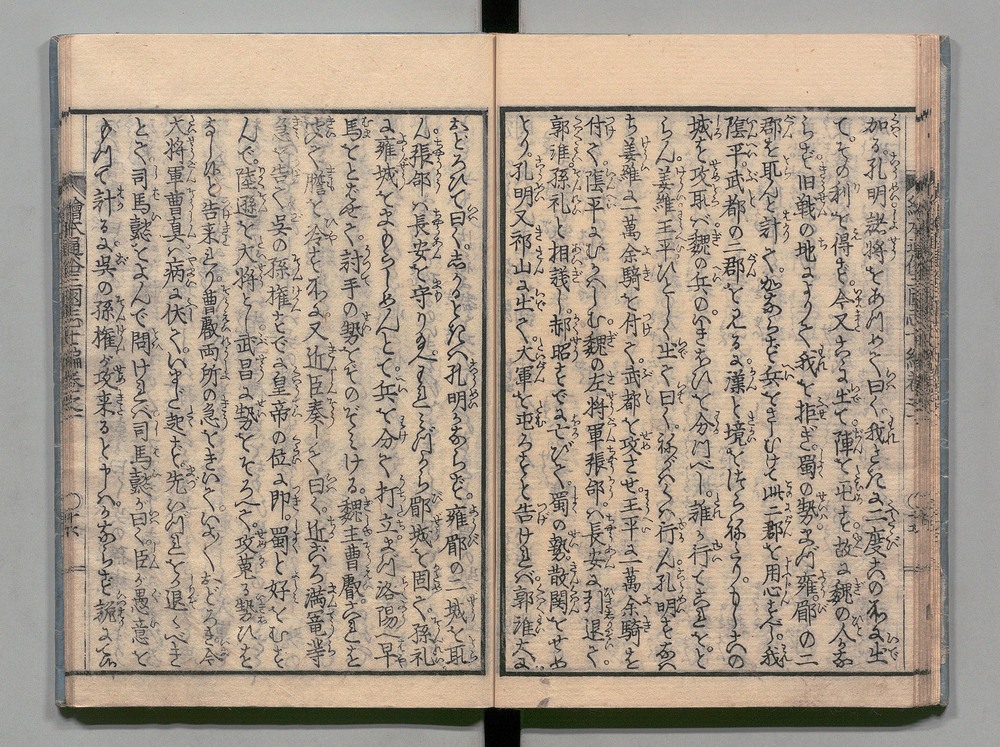 加る孔明諸将をあつめて曰く我さきに二度こゝの不に出
てその利を得ず今又こゝに出て陣を屯も故に魏の人かな
らず旧戦の地によりて我を拒ぎ蜀の勢まづ雍郿の二
郡を取んと計てかならず兵をさしむけて此二郡を用心すべし我
陰平武都の二郡を見るに漢と境をつらねたりもしこの
城を攻取バ魏の兵のいきおひを分つべし誰か行てこれをと
らん姜維王平ひとしく出て曰くねがハくハ行ん孔明すなハ
ち姜維に一萬余騎を付て武都を攻させ王平に一萬余騎を
付て陰平にむかハしむ魏の左将軍張郃ハ長安に引退て
郭淮孫礼と相議し郝昭すでに亡びて蜀の勢散関をせめ
とり孔明又祁山に出て大軍を屯ろすと告けれバ郭淮大に
おどろひて曰くしかるときハ孔明かならず雍郿の二城を取
ん張郃ハ長安を守り給へわれミづから郿城を固て孫礼
に雍城をまもらしめんとて兵を分て打立まづ洛陽へ早
馬をとバせて討手の勢をぞのぞミける魏王曹叡これを
聞て膽を冷すところに又近臣奏して曰く近ごろ満寵等
急を告て呉の孫権すでに皇帝の位に即蜀と好をむす
んで陸遜を大将とし武昌に勢をそろへて攻蒐る勢ひを
なしけりと告来れり曹叡両所の急をきいていよ〱おどろき今
大将軍曹真ハ病に伏ていまだ起ず先いづれをか退くべき
とて司馬懿をよんで問けれバ司馬懿が曰く臣が愚意を
もつて計るに呉の孫権が攻来ると申ハかならず詭にてハ